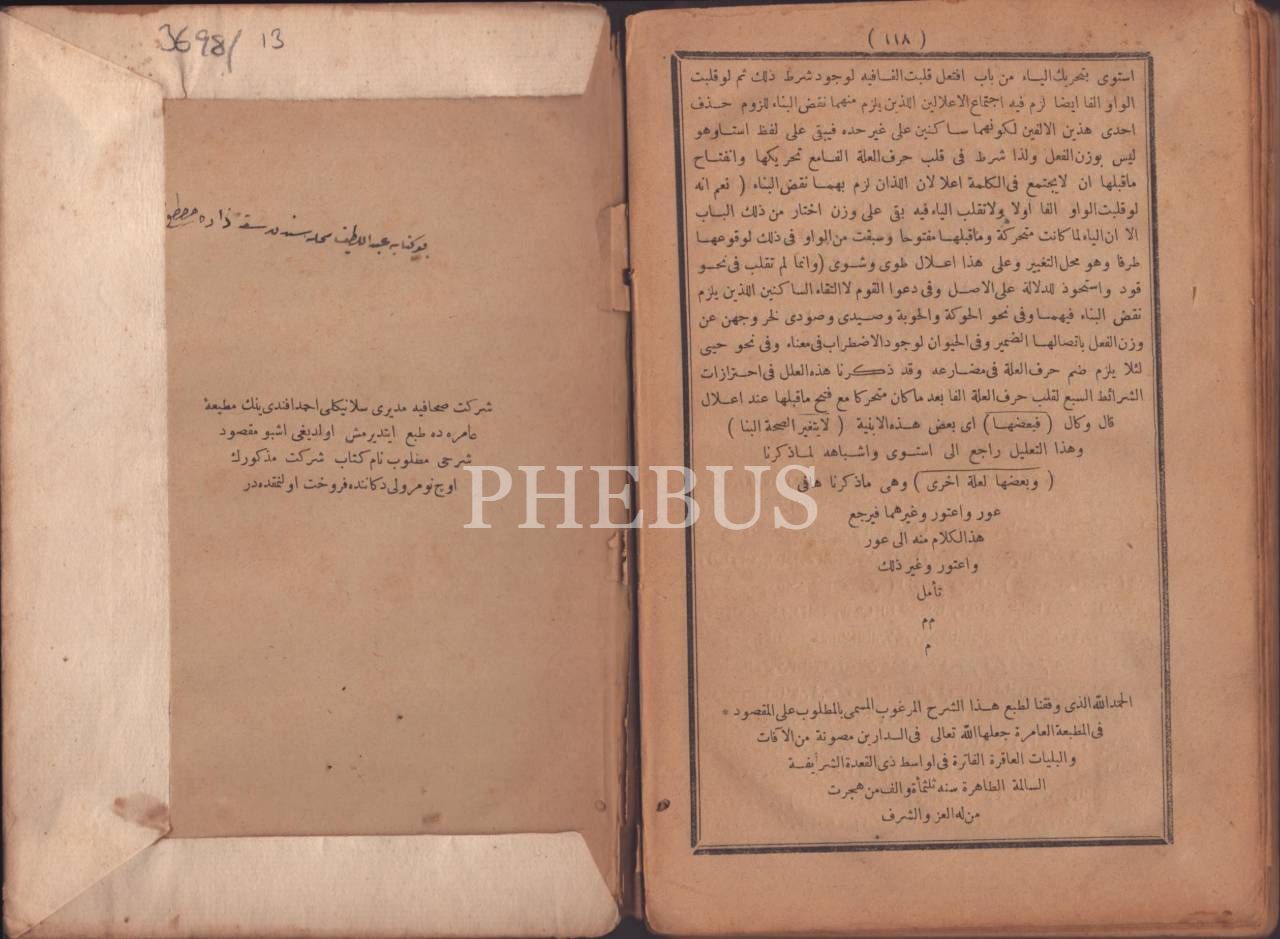 3698/ 13
شركت صحافيه مديرى سلانيكلى احمد افندى‌ينك مطبعۀ
عامره ده طبع ايتديرمش اولديغى اشبو مقصود
شرحى مطلوب نام كتاب شركت مذكورك
اوچ نومرولى دكاننده فروخت اولنمقده در
PHEBUS
( ١١٨ )
استوى بتحريك الياء من باب افتعل قلبت الفا فيه لوجود شرط ذلك ثم لو قلبت
الواو الفا ايضا لزم فيه اجتماع الاعلالين اللذين يلزم منهما نقض البناء للزوم حذف
احدى هذين الالفين لكونهما ساكنين على غير حده فيبقى على لفظ استا وهو
ليس بوزن الفعل ولذا شرط فى قلب حرف العلة الفا مع تحريكها وانفتاح
ماقبلها ان لايجتمع فى الكلمة اعلالان اللذان لزم بهما نقض البناء ( نعم انه
لو قلبت الواو الفا اولا ولا تقلب الياء فيه بقى على وزن اختار من ذلك الباب
الا ان الياء لما كانت متحركة وماقبلها مفتوحا وسبقت من الواو فى ذلك لوقوعها
طرفا وهو محل التغيير وعلى هذا اعلال طوى وشوى (وانما لم تقلب فى نحو
قود واستحوذ للدلالة على الاصل وفى دعوا القوم لالتقاء الساكنين اللذين يلزم
نقض البناء فيهما وفى نحو الحوكة والخوبة وصيدى وصودى لخروجهن عن
وزن الفعل باتصالها الضمير وفى الحيوان لوجود الاضطراب فى معناه وفى نحو حيى
لئلا يلزم ضم حرف العلة فى مضارعه وقد ذكرنا هذه العلل فى احترازات
الشرائط السبع لقلب حرف العلة الفا بعد ماكان متحركا مع فتح ماقبلها عند اعلال
قال وكال ( فبعضها ) اى بعض هذه الابنية ( لايتغير لصحة البنا )
وهذا التعليل راجع الى استوى واشباهه لما ذكرنا
( وبعضها لعلة اخرى ) وهى ماذكرنا هافى
عور واعتور وغيرهما فيرجع
هذا الكلام منه الى عور
واعتور وغير ذلك
تأمل
م م
م
الحمد الله الذى وفقنا لطبع هذا الشرح المرغوب المسمى بالمطلوب على المقصود *
فى المطبعة العامرة جعلها الله تعالى فى الدارين مصونة من الآفات
والبليات العاقرة الفاترة فى اواسط ذى القعدة الشريفة
السالمة الطاهرة سنه ثلثمأة والف من هجرت
من له العز والشرف